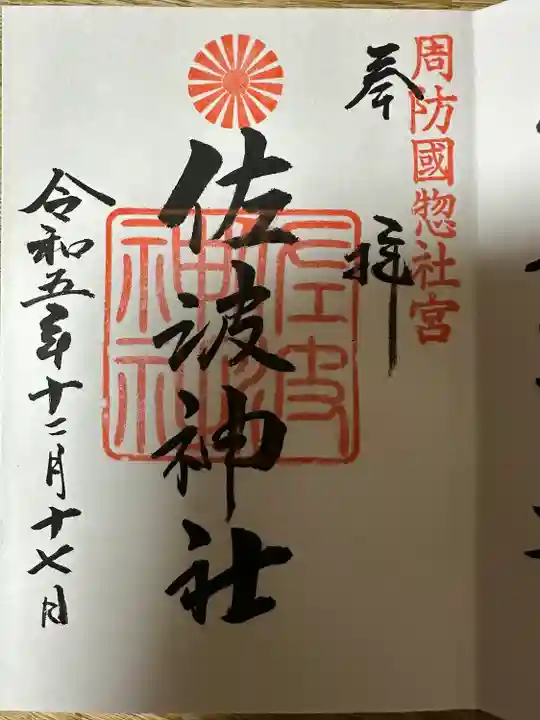 周防國惣社宮
奉拝
佐波神社
佐波神社
令和五年十二月十七日